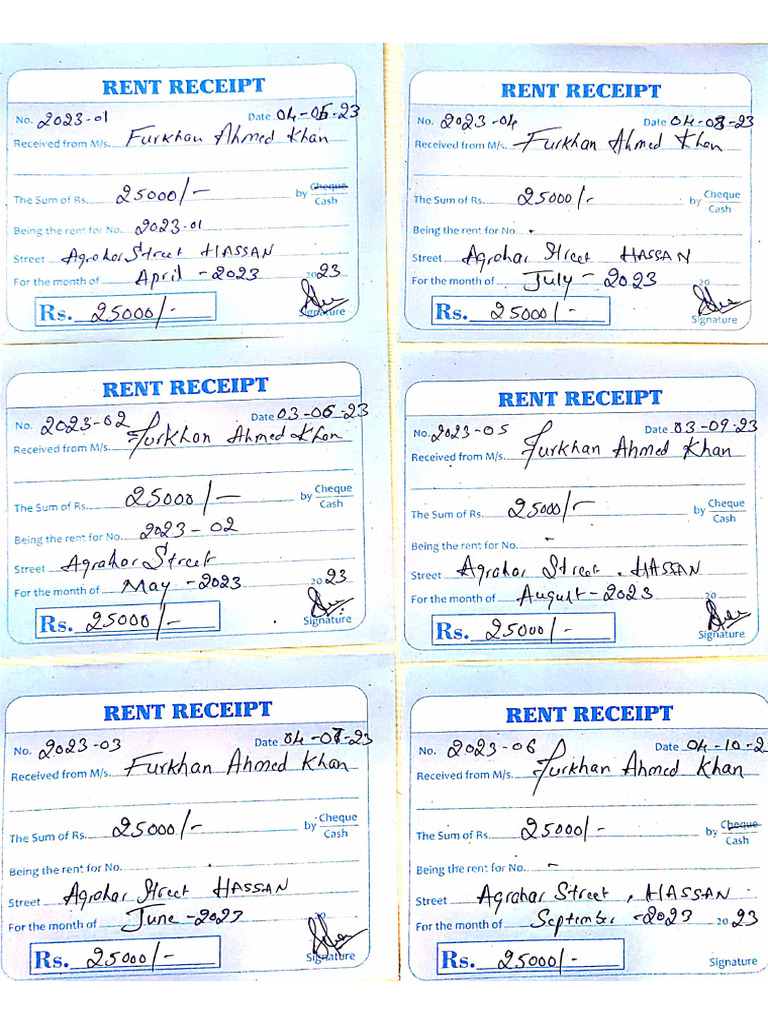 RENT RECEIPT
No. 2023-01 Date 04-05-23
Received from M/s. Furkhan Ahmed Khan
The Sum of Rs. 25000/- by Cheque
Cash
Being the rent for No. 2023-01
Street Agrahar Street HASSAN
For the month of April - 2023 2023
Rs. 25000/- Signature
RENT RECEIPT
No. 2023-04 Date 04-08-23
Received from M/s. Furkhan Ahmed Khan
The Sum of Rs. 25000/- by Cheque
Cash
Being the rent for No. -
Street Agrahar Street HASSAN
For the month of July - 2023 20
Rs. 25000/- Signature
RENT RECEIPT
No. 2023-02 Date 03-06-23
Received from M/s. Furkhan Ahmed Khan
The Sum of Rs. 25000/- by Cheque
Cash
Being the rent for No. 2023-02
Street Agrahar Street
For the month of May - 2023 2023
Rs. 25000/- Signature
RENT RECEIPT
No. 2023-05 Date 03-09-23
Received from M/s. Furkhan Ahmed Khan
The Sum of Rs. 25000/- by Cheque
Cash
Being the rent for No. -
Street Agrahar Street, HASSAN
For the month of August - 2023 20
Rs. 25000/- Signature
RENT RECEIPT
No. 2023-03 Date 04-07-23
Received from M/s. Furkhan Ahmed Khan
The Sum of Rs. 25000/- by Cheque
Cash
Being the rent for No.
Street Agrahar Street HASSAN
For the month of June - 2023 20
Rs. 25000/- Signature
RENT RECEIPT
No. 2023-06 Date 04-10-2
Received from M/s. Furkhan Ahmed Khan
The Sum of Rs. 25000/- by Cheque
Cash
Being the rent for No. -
Street Agrahar Street, HASSAN
For the month of September - 2023 2023
Rs. 25000/- Signature